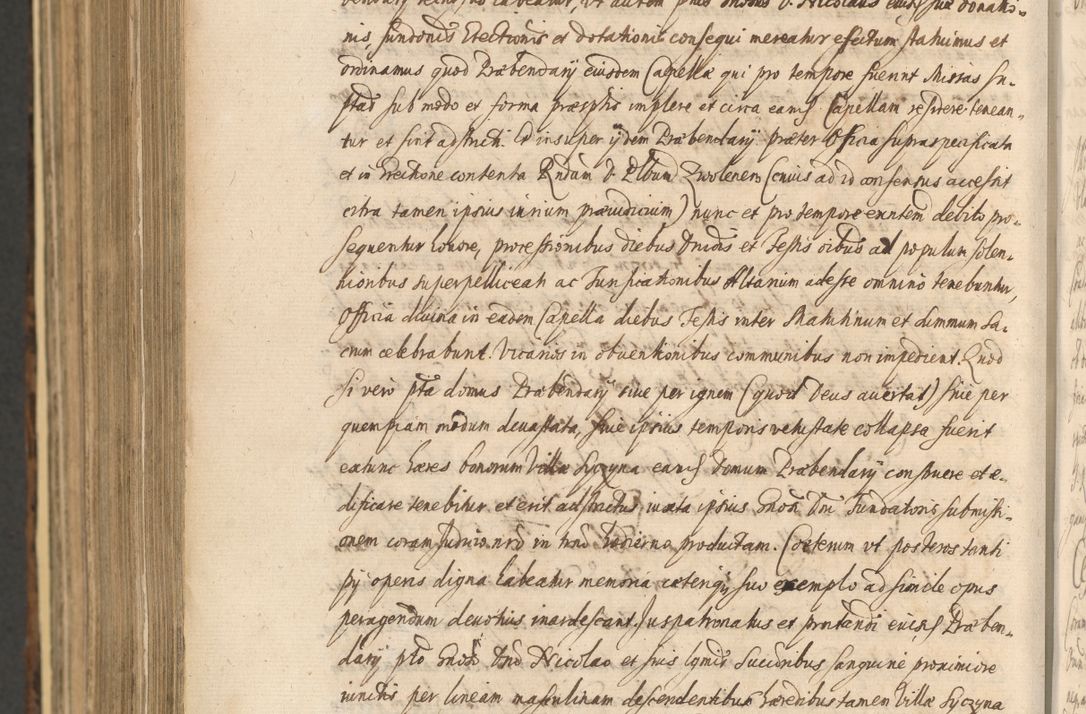 bendarij
nis, fundonis Erectionis et dotationis consequi mereatur effectum statuimus et
ordinamus quod Præbendarij eiusdem Capellæ qui pro tempore fuerint Missas fu-
ctas sub modo et forma præsptis implere et circa eand Capellam residere tenean-
tur et sint adstricti. Et insuper ijdem Præbendarij præter Officia supraspecificata
et in Erectione contenta Rndum D. Plbum Zwolenen (cuius ad id consensus accessit
citra tamen ipsius in rium præiudicium) nunc et pro tempore exntem debito pro-
sequentur honore, processionibus diebus Dnicis et Festis oibus ad populum solen-
nioribus superpelliceati ac Turificationibus Altarium adesse omnino tenebuntur,
Officia divina in eadem Capella diebus Festis inter Matutinum et summum Sa-
crum celebrabunt. Vicarios in obventionibus communibus non impedient. Quod
si vero pta domus Præbendarij sive per ignem (quod Deus avertat) sive per
quempiam modum devastata, sive ipsius temporis vetustate collapsa fuerit
extunc hæres bonorum Villæ Syczyna eand domum Præbendarij construere et æ-
dificare tenebitur et erit adstrictus iuxta ipsius Gnosi Dni Fundatoris submissi-
onem coram Judicio nro in tno hodierno productam. Cæterum ut posteros tanti
pij operis digna habeatur memoria cæteriq suo exemplo ad simile opus
peragendum devotius inardescant. Jus patronatus et pntandi eiusd Præben-
darij pto Gnoso Dno Nicolao et suis lgmis Succribus sanguine proximiore
iunctis per lineam masculinam descendentibus hæredibus tamen Villæ Syczyna